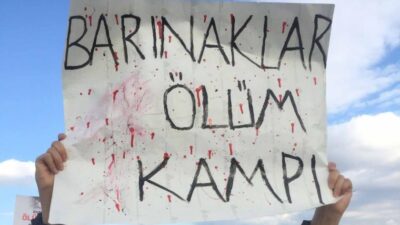 BARINAKLAR
ÖLÜM
KAMPI